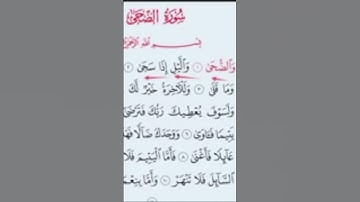 سُورَةُ الضُّحَىٰ
بِسْمِ اللَّهِ الرَّحْمَٰنِ
وَالضُّحَىٰ ١ وَالَّيْلِ إِذَا سَجَىٰ ٢
وَمَا قَلَىٰ ٣ وَلَلْآخِرَةُ خَيْرٌ لَّكَ
وَلَسَوْفَ يُعْطِيكَ رَبُّكَ فَتَرْضَىٰ
يَتِيمًا فَـَٔاوَىٰ ٦ وَوَجَدَكَ ضَآلًّا فَهَدَىٰ
عَآئِلًا فَأَغْنَىٰ ٨ فَأَمَّا الْيَتِيمَ فَلَا
السَّآئِلَ فَلَا تَنْهَرْ ١٠ وَأَمَّا بِنِعْمَةِ